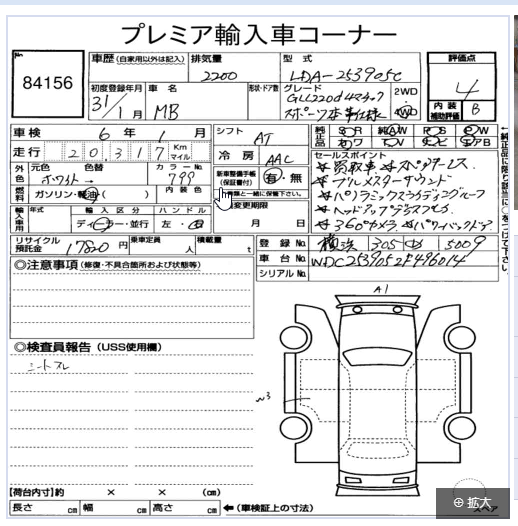 プレミア輸入車コーナー
No.
84156
車歴 (自家用以外は記入)
排気量
2200
型式
LDA-253905C
評価点
4
初度登録年月
31/1月
車名
MB
形状・ドア数
グレード
GLC220d 4マチック
スポーツ本革仕様
2WD
4WD
内装補助評価
B
車検 6年 1月
シフト
AT
走行 20,317 Km マイル
冷房
AAC
外色
元色 色替
ホワイト →
カラーNo.
799
燃料
ガソリン・軽油( )
内装色
新車整備手帳(保証書付)
有・無
輸入車用
年式
輸入区分
ディーラー・並行
ハンドル
左・右
変更期限
月 日
リサイクル預託金
17820円
乗車定員
人
積載量
t
純正品
SR
AW
PS
PW
カワ
TV
ナビ
エアB
セールスポイント
☆買取車 ☆スペアキーレス
☆ブルメスターサウンド
☆パノラミックスライディングルーフ
☆ヘッドアップディスプレイ
☆360°カメラ ☆パワーバックドア
登録No.
横浜 305 5009
車台No.
WDC2539052F496014
シリアルNo.
◎注意事項 (修復・不具合箇所および状態等)
◎検査員報告 (USS使用欄)
シートスレ
A1
W3
【荷台内寸】約 × × (cm)
長さ cm 幅 cm 高さ cm ←(車検証上の寸法)
拡大